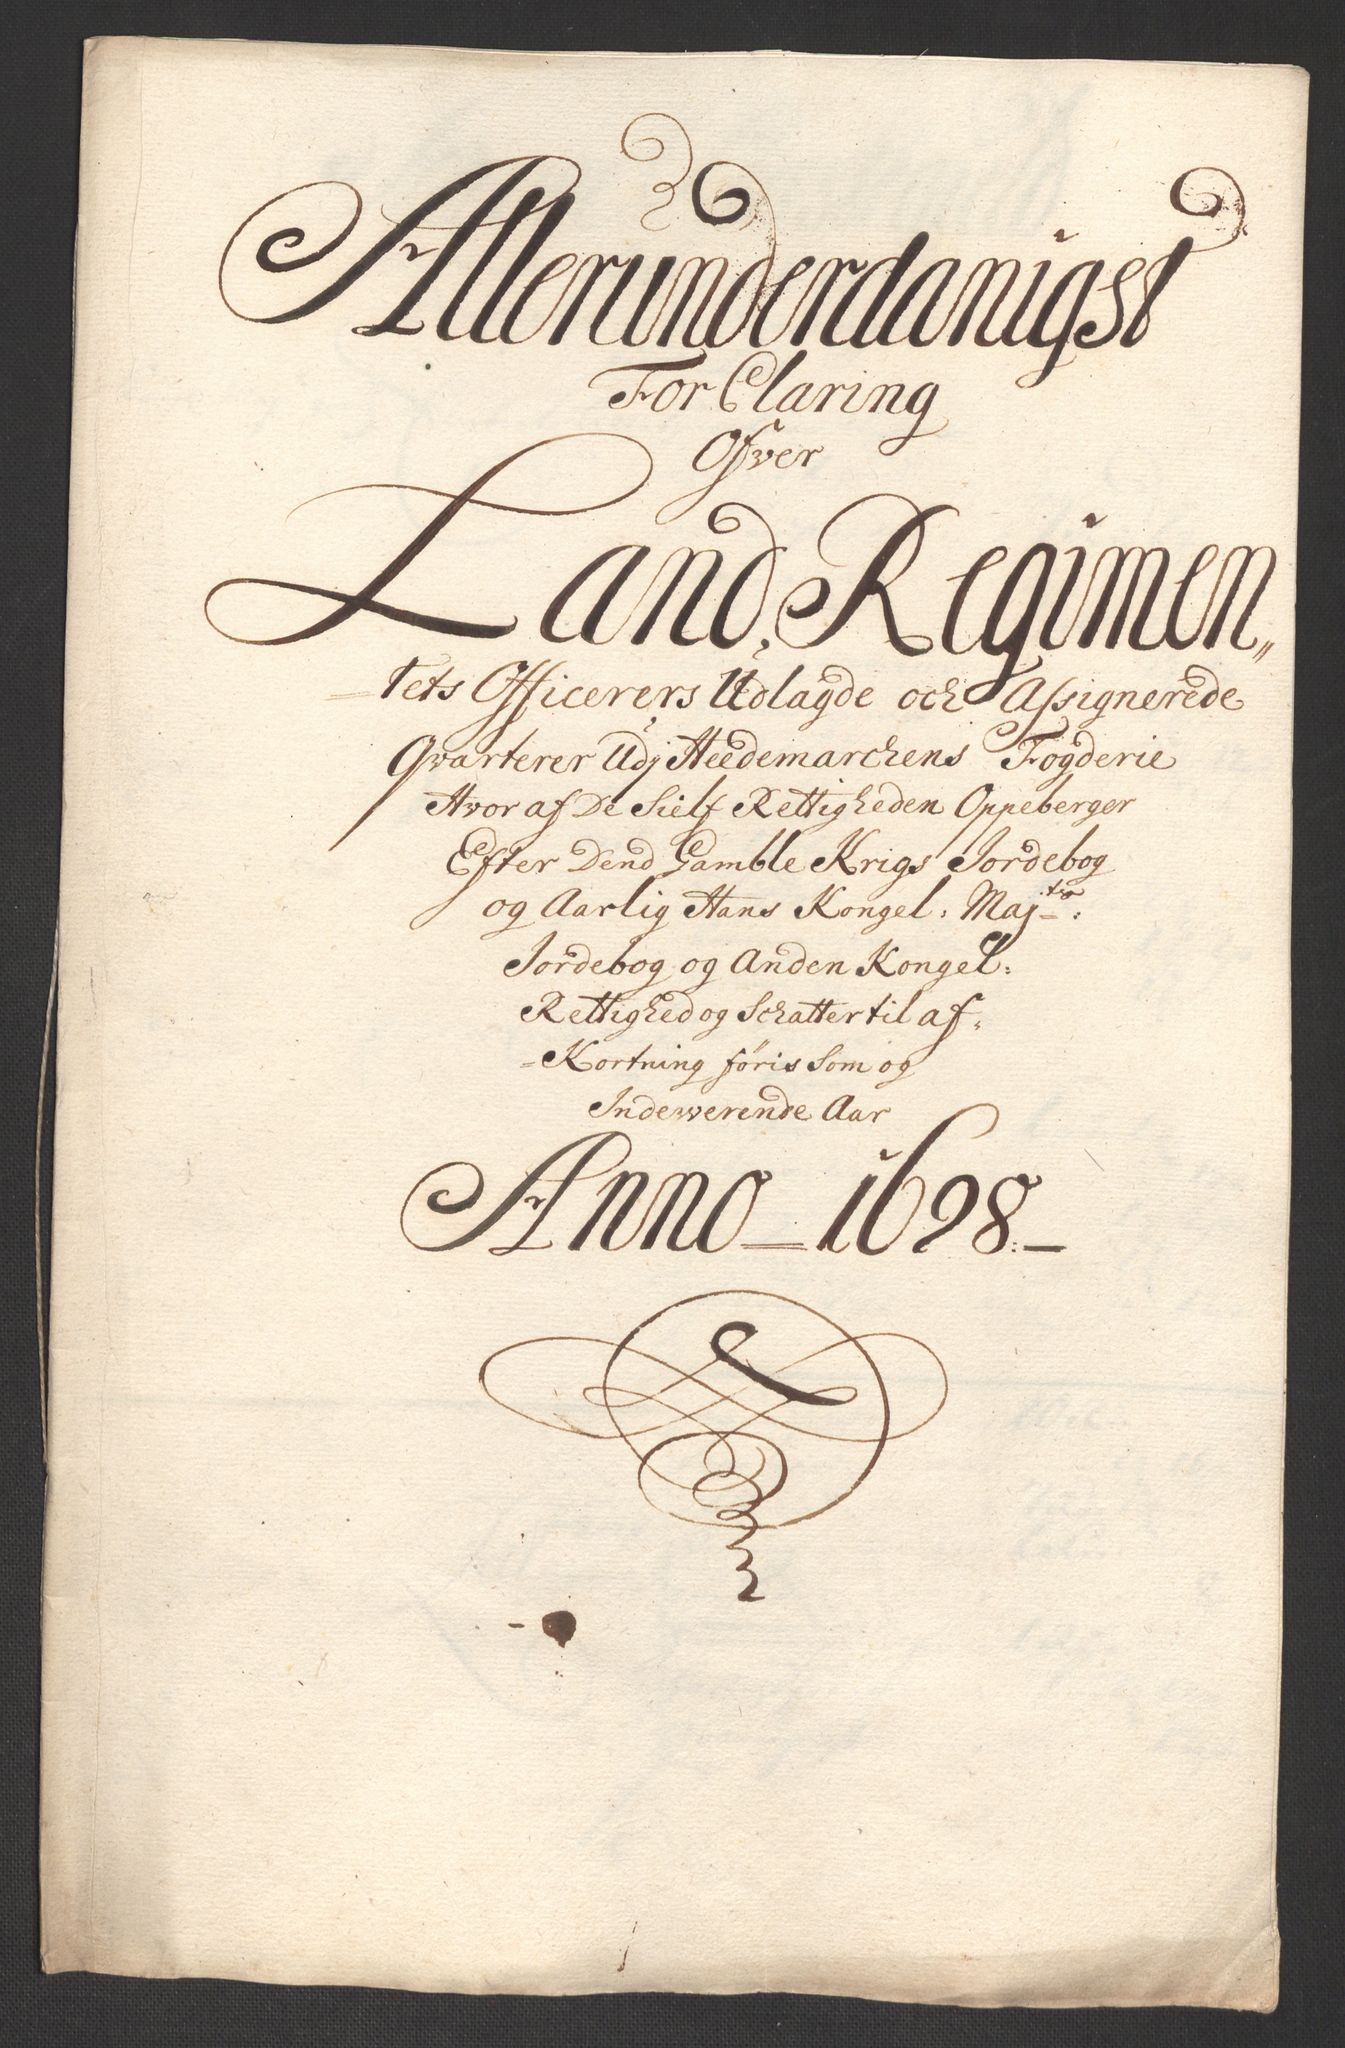 Allerunderdanigst
For Claring
Ofver
Land, Regimen„
=tets Officerers Udlagde och Assignerede
Qvarterer Udj Heedemarchens Fogderie
Hvor af De Sielf Rettigheden Oppeberger
Efter Dend Gamble Krigs Jordebog
og Aarlig Hans Kongel: Maj:ts:
Jordebog og Anden Kongel:
Rettighed og Schatter til af=
=Kortning føris Som og
Indewerende Aar
Anno = 1698:-